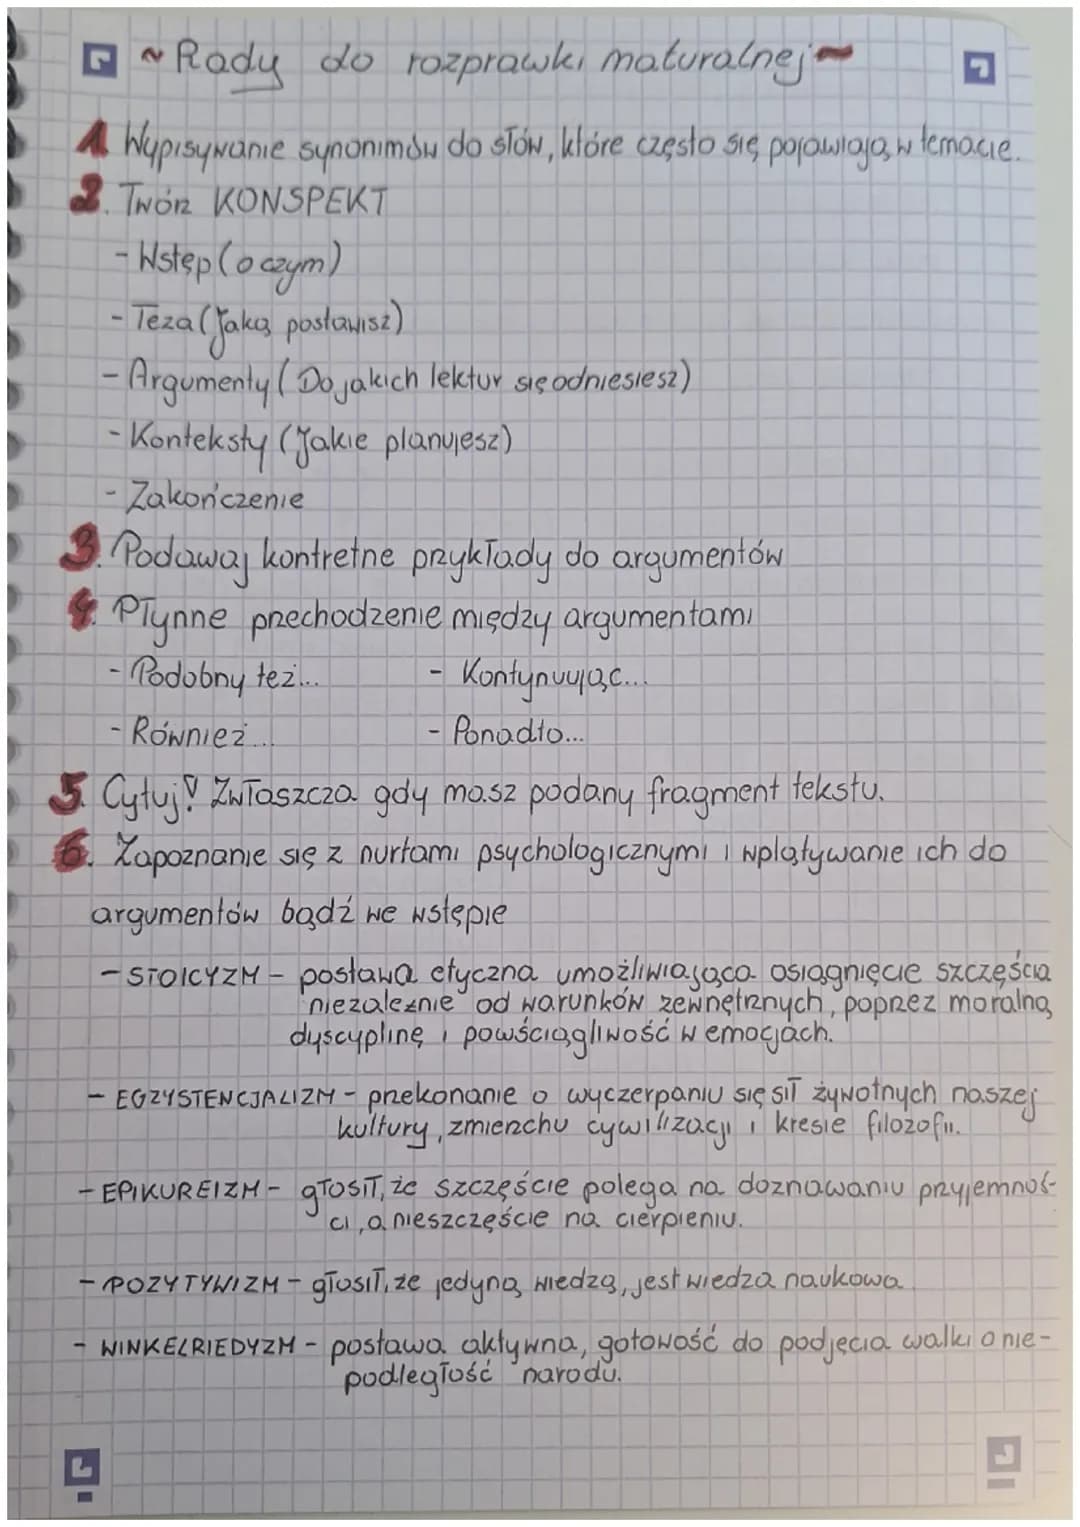 ~ Rady do rozprawki maturalnej ~
1. Wypisywanie synonimów do słów, które często się pojawiają w temacie.
2. Twórz KONSPEKT
- Wstęp (o czym)
- Teza (Jaką postawisz)
- Argumenty (Do jakich lektur się odniesiesz)
- Konteksty (Jakie planujesz)
- Zakończenie
3. Podawaj kontretne przykłady do argumentów
4. Płynne przechodzenie między argumentami
- Podobny też... - Kontynuując...
- Również... - Ponadto...
5. Cytuj! Zwłaszcza gdy masz podany fragment tekstu.
6. Zapoznanie się z nurtami psychologicznymi i wplątywanie ich do
argumentów bądź we wstępie
- STOICYZM - postawa etyczna umożliwiająca osiągnięcie szczęścia
niezależnie od warunków zewnętrznych, poprzez moralną
dyscyplinę i powściągliwość w emocjach.
- EGZYSTENCJALIZM - przekonanie o wyczerpaniu się sił żywotnych naszej
kultury, zmierzchu cywilizacji i kresie filozofii.
- EPIKUREIZM - głosił, że szczęście polega na doznawaniu przyjemnoś-
ci, a nieszczęście na cierpieniu.
- POZYTYWIZM - głosił, że jedyną wiedzą, jest wiedza naukowa.
- WINKELRIEDYZM - postawa aktywna, gotowość do podjęcia walki o nie-
podległość narodu.